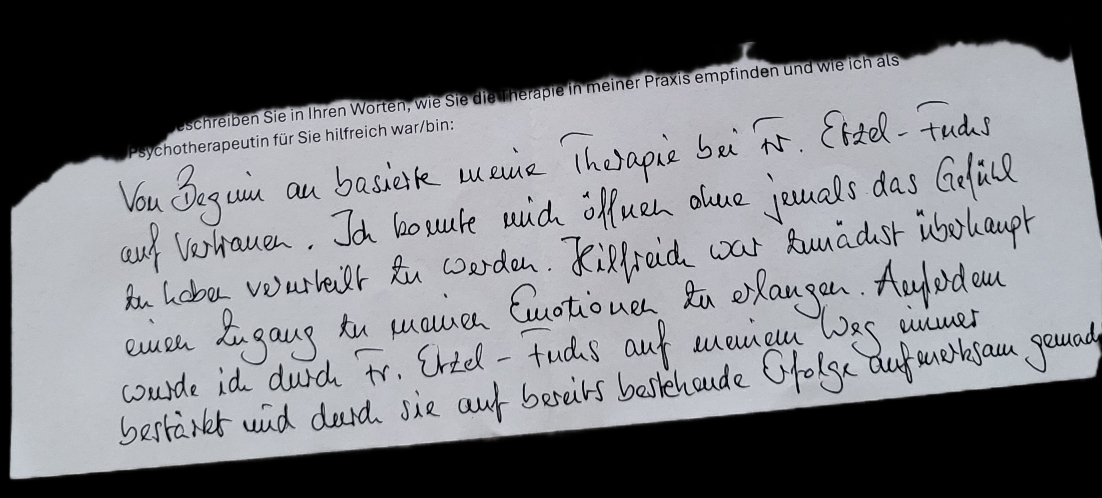 eschreiben Sie in Ihren Worten, wie Sie die Therapie in meiner Praxis empfinden und wie ich als
Psychotherapeutin für Sie hilfreich war/bin:
Von Beginn an basierte meine Therapie bei Fr. Etzel-Fuchs
auf Vertrauen. Ich konnte mich öffnen ohne jemals das Gefühl
zu haben verurteilt zu werden. Hilfreich war zunächst überhaupt
einen Zugang zu meinen Emotionen zu erlangen. Außerdem
wurde ich durch Fr. Etzel-Fuchs auf meinem Weg immer
bestärkt und durch sie auf bereits bestehende Erfolge aufmerksam gemach